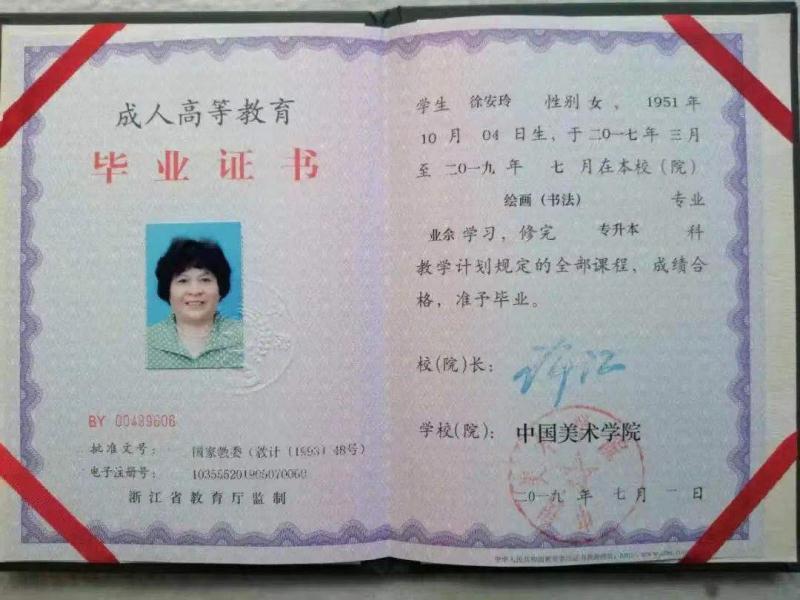 成人高等教育
毕业证书
BY 00489606
批准文号： 国家教委（教计（1993）48号）
电子注册号： 103555201905070060
浙江省教育厅监制
学生 徐安玲 性别 女，1951 年
10 月 04 日生，于二〇一七年 三月
至 二〇一九 年 七 月在本校（院）
绘画（书法） 专业
业余 学习，修完 专升本 科
教学计划规定的全部课程，成绩合
格，准予毕业。
校(院)长：
学校(院)： 中国美术学院
二〇一九 年 七 月 一 日